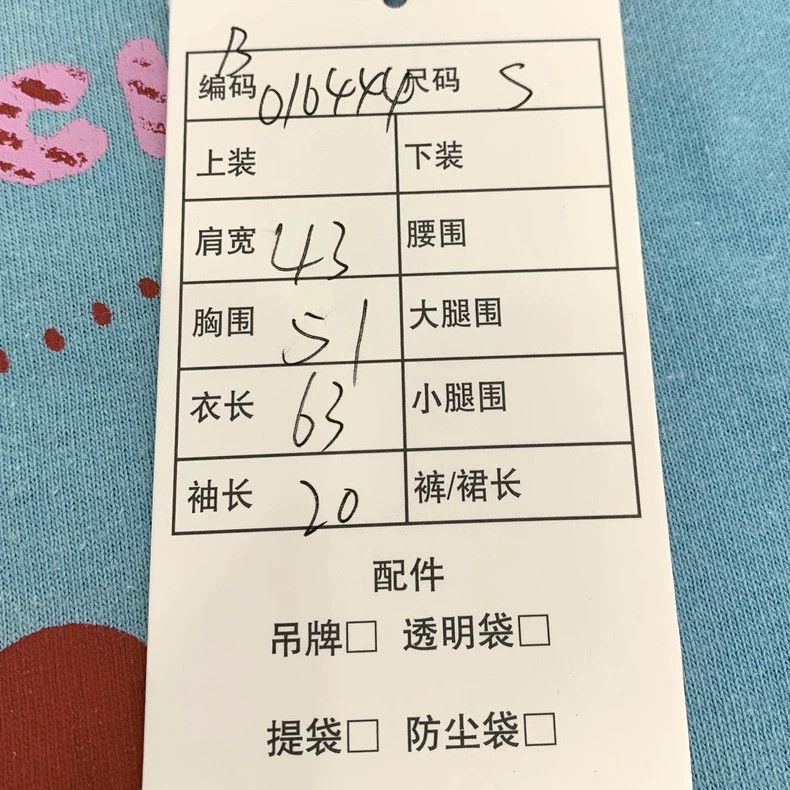 B
编码 016444 尺码 S
上装 下装
肩宽 43 腰围
胸围 51 大腿围
衣长 63 小腿围
袖长 20 裤/裙长
配件
吊牌□ 透明袋□
提袋□ 防尘袋□